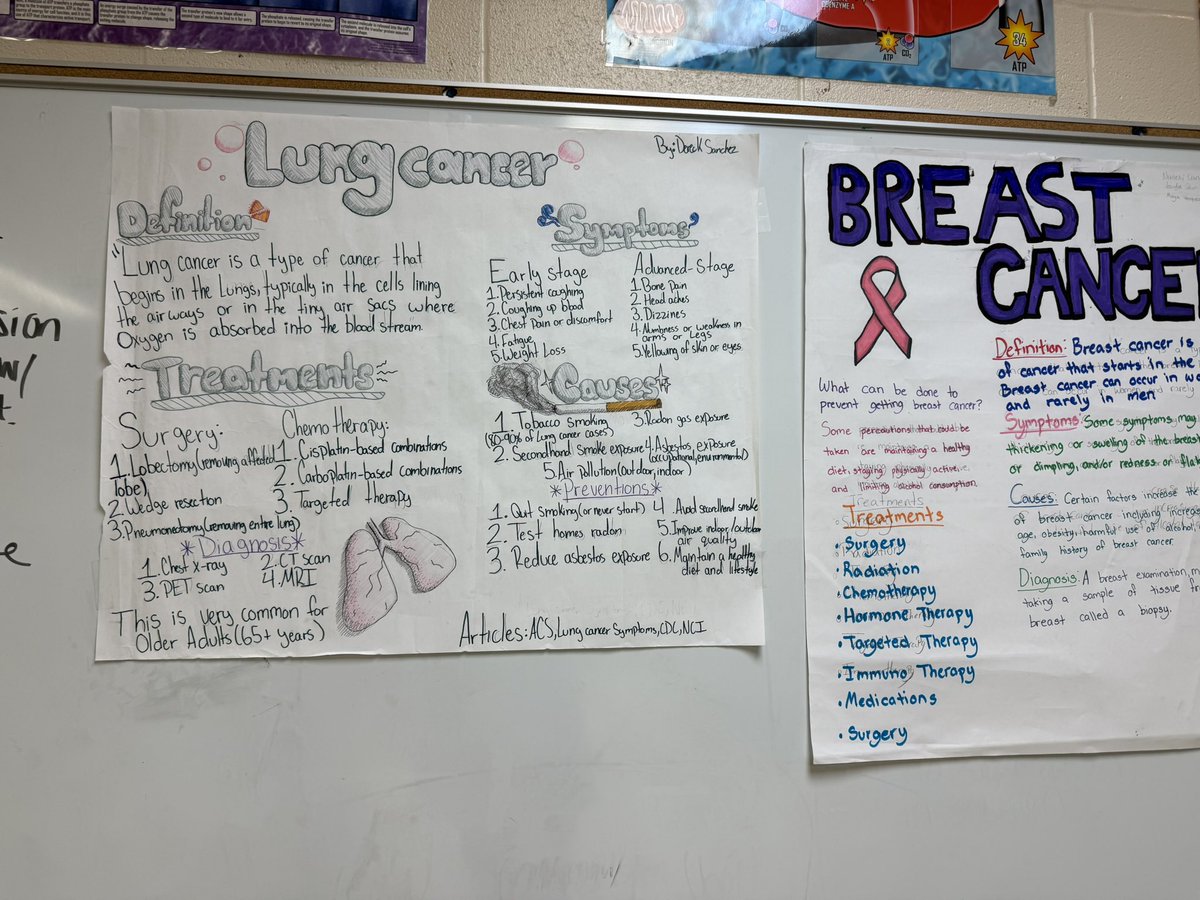 COENZYME A
CO₂
ATP
34
ATP
sion
w/
Lung cancer
By: Derek Sanchez
Definition
"Lung cancer is a type of cancer that
begins in the Lungs, typically in the cells lining
the airways or in the tiny air sacs where
Oxygen is absorbed into the blood stream.
Treatments
Surgery:
1. Lobectomy (removing affected
lobe)
2. Wedge resection
3. Pneumonectomy (removing entire lung)
Chemotherapy:
1. Cisplatin-based combinations
2. Carboplatin-based combinations
3. Targeted therapy
*Diagnosis*
1. Chest x-ray
2. CT scan
3. PET scan
4. MRI
This is very common for
Older Adults (65+ years)
Symptoms
Early stage
1. Persistent coughing
2. Coughing up blood
3. Chest Pain or discomfort
4. Fatigue
5. Weight Loss
Advanced-Stage
1. Bone Pain
2. Head aches
3. Dizzines
4. Numbness or weakness in
arms or Legs
5. Yellowing of skin or eyes
Causes
1. Tobacco smoking
(80-90% of Lung cancer cases)
2. Secondhand smoke exposure
3. Radon gas exposure
4. Asbestos exposure
(occupational, environmental)
5. Air Pollution (outdoor, indoor)
*Preventions*
1. Quit smoking (or never start)
2. Test homes radon
3. Reduce asbestos exposure
4. Avoid secondhand smoke
5. Improve indoor/outdoor
air quality
6. Maintain a healthy
diet and lifestyle
Articles: ACS, Lung cancer Symptoms, CDC, NCI
BREAST
CANCE
What can be done to
prevent getting breast cancer?
Some percautions that could be
taken are maintaining a healthy
diet, staying physically active,
and limiting alcohol consumption.
Treatments
• Surgery
• Radiation
• Chemotherapy
• Hormone Therapy
• Targeted Therapy
• Immuno Therapy
• Medications
• Surgery
Definition: Breast cancer is
of cancer that starts in the
Breast cancer can occur in w
and rarely in men
Symptoms: Some symptoms may
thickening or swelling of the breast
or dimpling, and/or redness or flak
Causes: Certain factors increase the
of breast cancer including increas
age, obesity, harmful use of alcohol,
family history of breast cancer.
Diagnosis: A breast examination, m
taking a sample of tissue fr
breast called a biopsy.